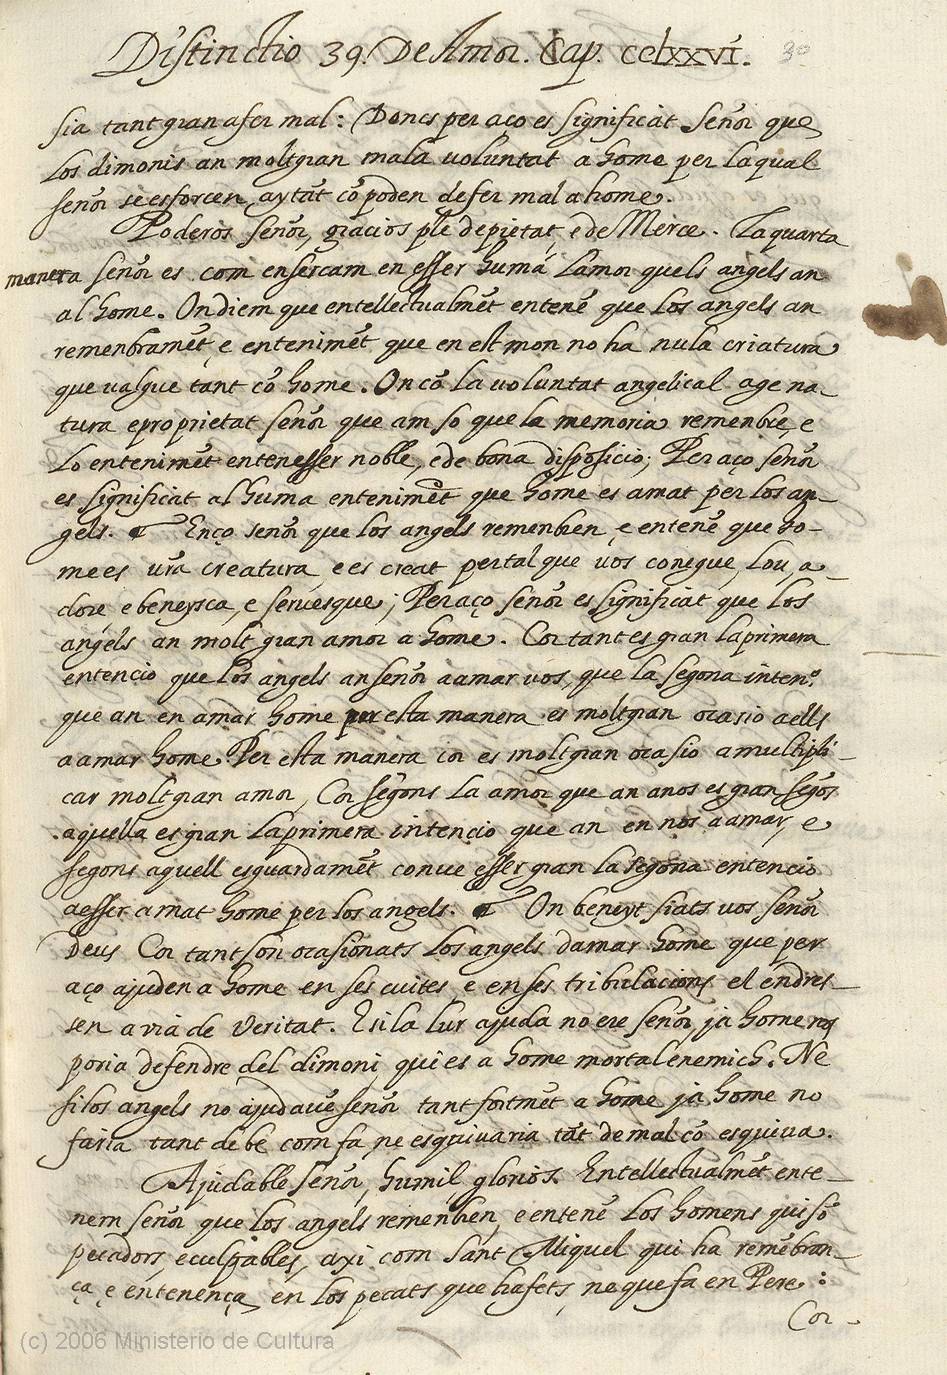 Distinctio 39. De Amor. Cap. CCLXXVI. 30
sia tant gran a fer mal: Doncs per aço es significat Señor que
los dimonis an molt gran mala voluntat a home per la qual
señor se esforcen aytãt cõ poden de fer mal a home.
Poderós Señor, gracios plè de pietat, e de Merce. La quarta
manera señor es com ensercam en esser humá lamor quels angels an
al home. On diem que entellectualmẽt entenẽ que los angels an
remenbramẽt, e entenimẽt que en est mon no ha nula criatura
que valgue tant cõ home. On cõ la voluntat angelical age na-
tura e proprietat señor que am so que la memoria remenbre, e
lo entenimẽt enten esser noble, e de bona disposicio; Per aço señor
es significat al huma entenimẽt que home es amat per los an-
gels. Enço señor que los angels remenbren, e entenẽ que ho-
me es vr̃a creatura, e es creat per tal que vos conegue, lou, a-
dore, e beneysca, e servesque; Per aço señor es significat que los
angels an molt gran amor a home. Cor tant es gran la primera
entencio que los angels an señor a amar vos, que la segona inten.º
que an en amar home per esta manera es molt gran ocasio a ells
a amar home. Per esta manera cor es molt gran ocasio a multipli-
car molt gran amor, Cor segons la amor que an a nos es gran segõs
aquella es gran la primera intencio que an en nos a amar, e
segons aquell esguardamẽt conve esser gran la segona entencio
a esser amat home per los angels. On beneyt siats vos señor
Deus Cor tant son ocasionats los angels damar home que per
aço ajuden a home en ses cuites, e en ses tribulacions, el endres-
sen a via de veritat. E si la lur ajuda no ere señor, ja home nos
poria defendre del dimoni qui es a home mortal enemich. Ne
si los angels no ajudavẽ señor tant fortmẽt a home ja home no
faria tant de be com fa, ne esquivaria tãt de mal cõ esquiva.
Ajudable Señor, humil, gloriós. Entellectualmẽt ente-
nem señor que los angels remenbren, e entenẽ los homens qui sõ
pecadors, e culpables, axi com sant Miquel qui ha remẽbran-
ça, e entenença en los pecats que ha fets, ne que fa en Pere:
Cor
(c) 2006 Ministerio de Cultura